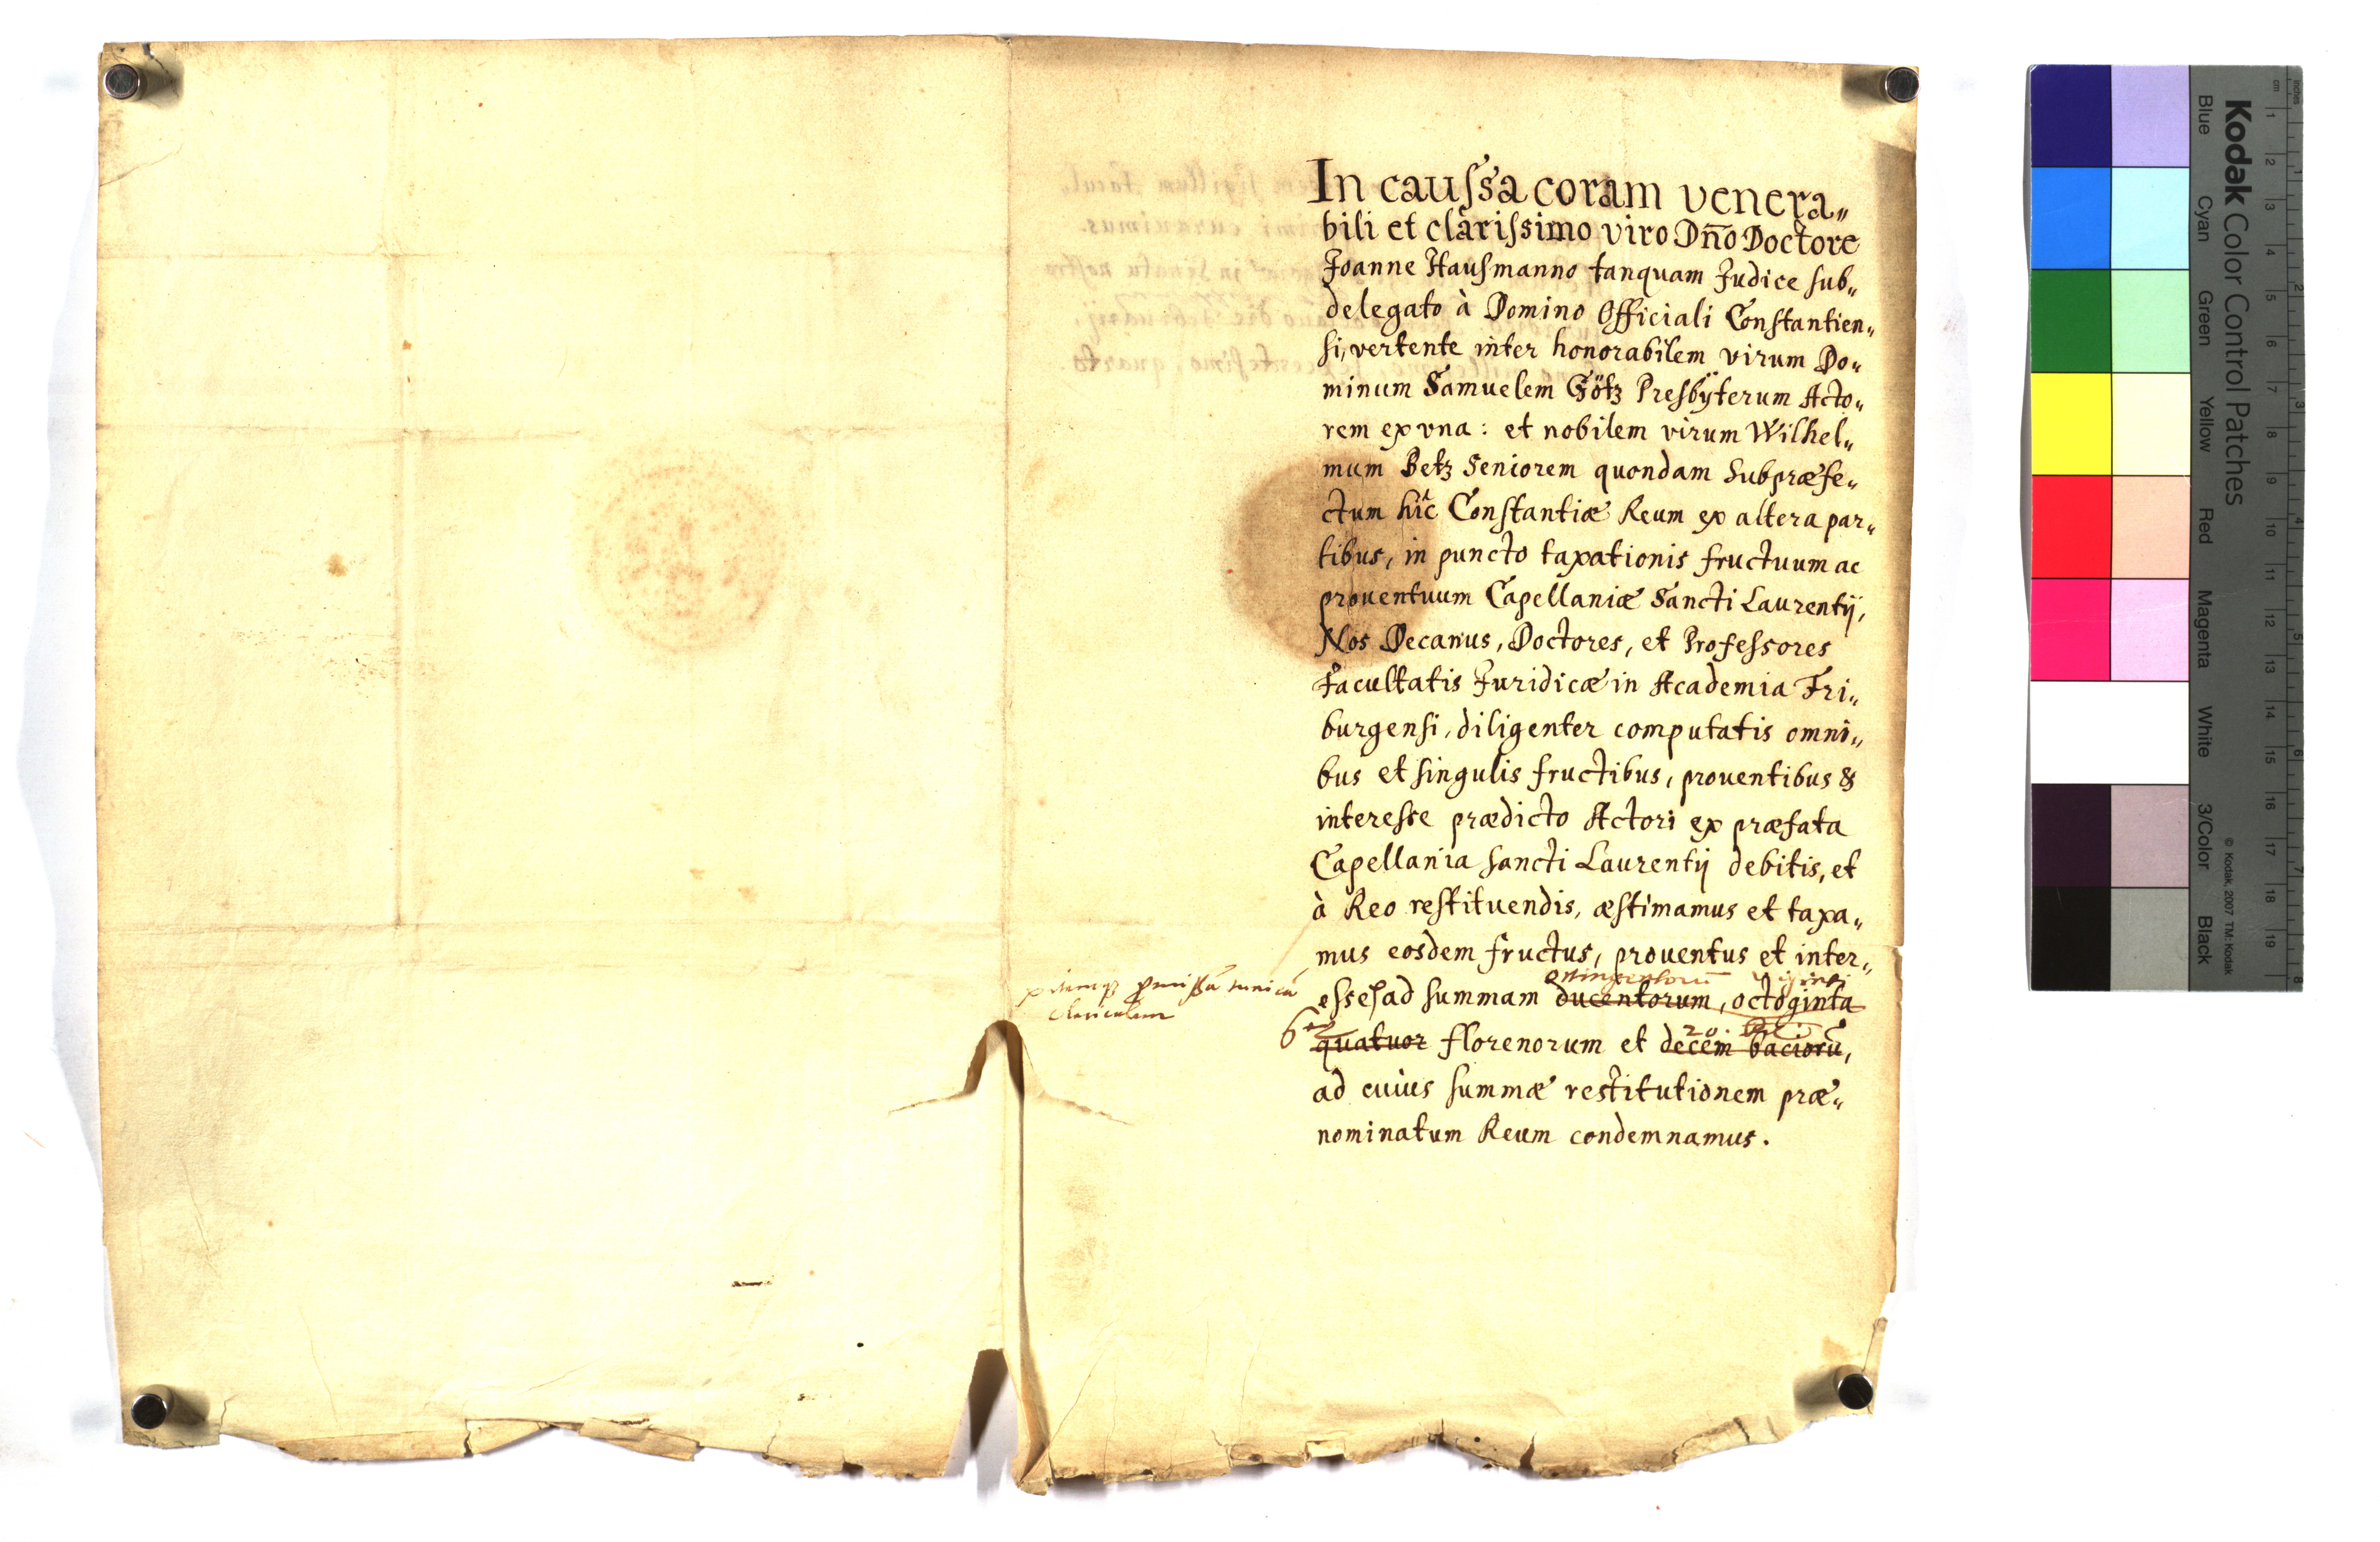 In caussa coram venera„
bili et clarissimo viro Dño Doctore
Joanne Hausmanno tanquam Judice sub„
delegato à Domino Officiali Constantien„
si, vertente inter honorabilem virum Do„
minum Samuelem Götz Presbÿterum Acto„
rem ex vna: et nobilem virum Wilhel„
mum Betz Seniorem quondam Subpræfe„
ctum hîc Constantiæ Reum ex altera par„
tibus, in puncto taxationis fructuum ac
prouentuum Capellaniæ Sancti Laurentij,
Nos Decanus, Doctores, et Professores
Facultatis Juridicæ in Academia Fri„
burgensi, diligenter computatis omni„
bus et singulis fructibus, prouentibus &
interesse prædicto Actori ex præfata
Capellania Sancti Laurentij debitis, et
à Reo restituendis, æstimamus et taxa„
mus eosdem fructus, prouentus et inter„
esse, ad summam ducentorum, octoginta
quatuor florenorum et decem bacioru͂,
20.
ad cuius summæ restitutionem præ„
nominatum Reum condemnamus.
Kodak Color Control Patches
Blue Cyan Green Yellow Red Magenta White 3/Color Black
© Kodak, 2007 TM: Kodak
cm 1 2 3 4 5 6 7 8 9 10 11 12 13 14 15 16 17 18 19
inches 1 2 3 4 5 6 7 8